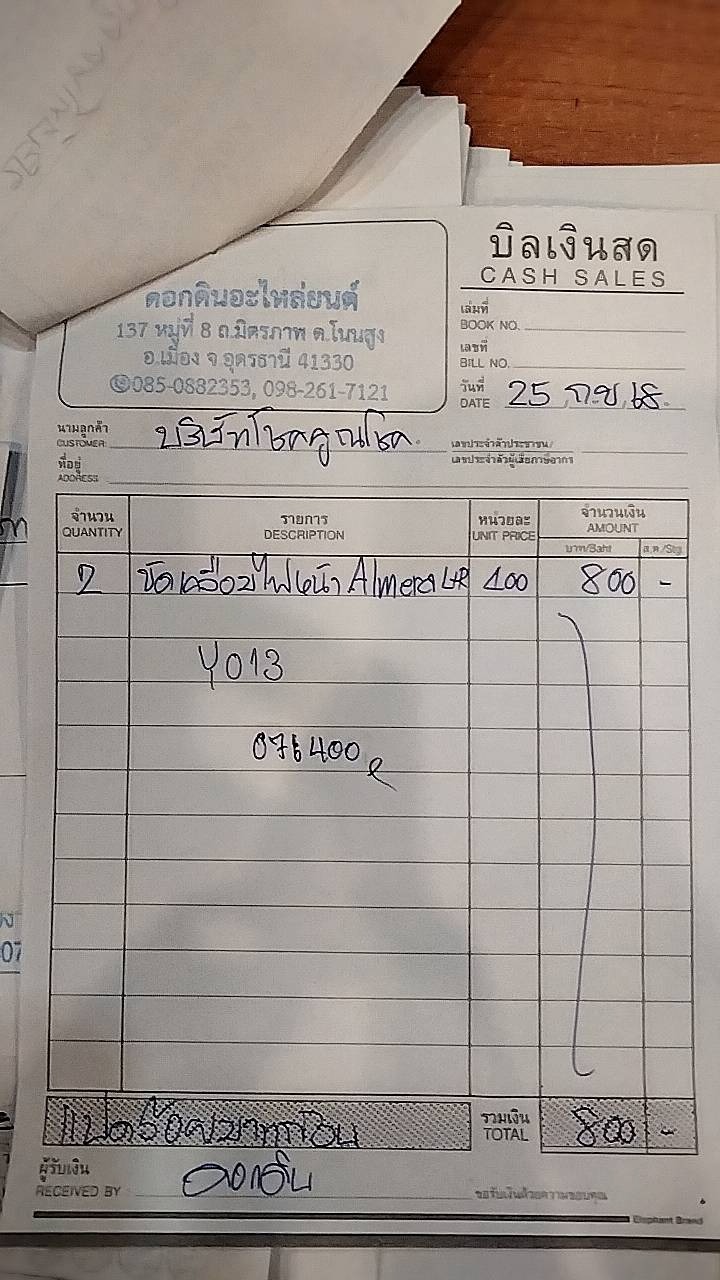 บิลเงินสด
CASH SALES
ดอกดินอะไหล่ยนต์
137 หมู่ที่ 8 ถ.มิตรภาพ ต.โนนสูง
อ.เมือง จ.อุดรธานี 41330
085-0882353, 098-261-7121
เล่มที่
BOOK NO.
เลขที่
BILL NO.
วันที่
DATE 25 ก.ย. 68
นามลูกค้า
CUSTOMER บริษัทโชคคูณโชค
เลขประจำตัวประชาชน/
เลขประจำตัวผู้เสียภาษีอากร
ที่อยู่
ADDRESS
จำนวน รายการ หน่วยละ จำนวนเงิน
QUANTITY DESCRIPTION UNIT PRICE AMOUNT
บาท/Baht ส.ต./Stg.
2 ขัดเคลือบไฟหน้า Almera L+R 400 800 -
4013
076400
แปดร้อยบาทถ้วน รวมเงิน 800 -
TOTAL
ผู้รับเงิน
RECEIVED BY ดอกดิน
ขอรับเงินด้วยความขอบคุณ
Elephant Brand